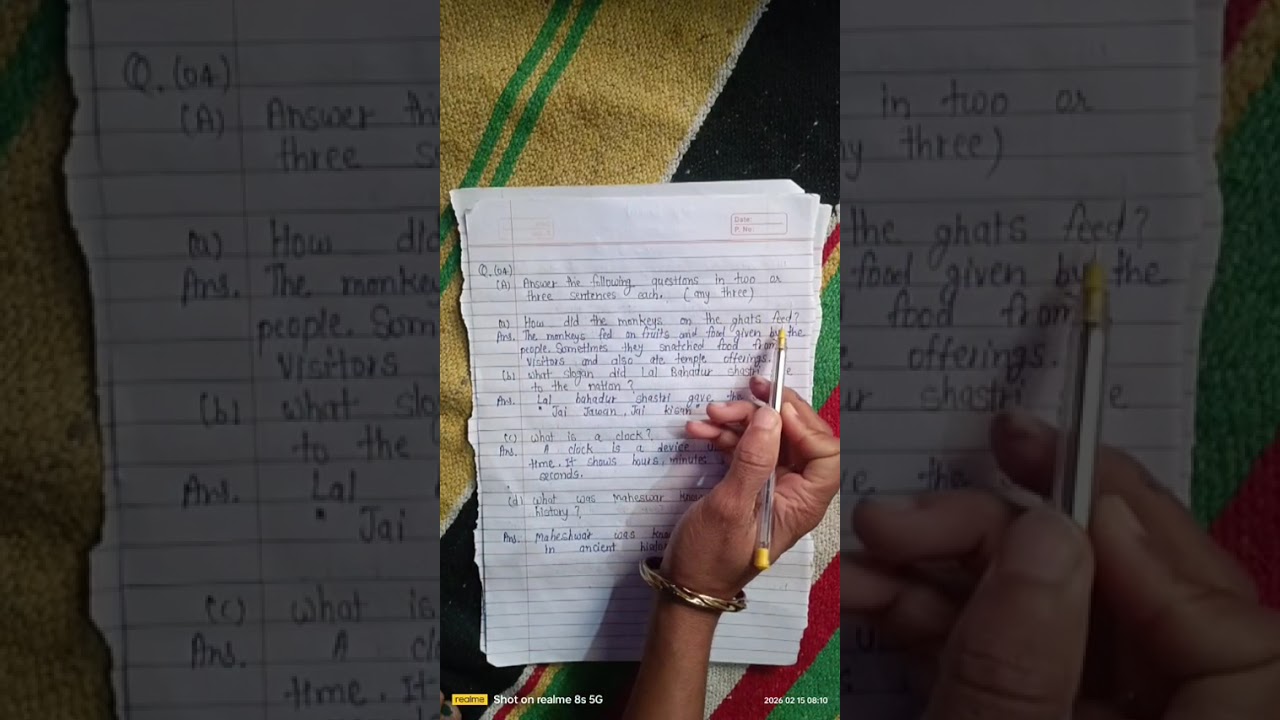 Date:
P. No:
Q. (04)
(A) Answer the following questions in two or
three sentences each. (any three)
(a) How did the monkeys on the ghats feed?
Ans. The monkeys fed on fruits and food given by the
people. Sometimes they snatched food from
visitors and also ate temple offerings.
(b) what slogan did Lal Bahadur shastri
to the nation?
Ans. Lal bahadur shastri gave the
"Jai Jawan, Jai kisan"
(c) what is a clock?
Ans. A clock is a device
time. It shows hours, minutes
seconds.
(d) what was Maheswar
history?
Ans. Maheshwar was
in ancient
realme Shot on realme 8s 5G
2026 02 15 08:10